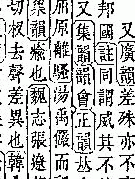 又廣韻差殊亦不
邦國註同謂威其不
又集韻韻會正韻𠀤
集韻瘉也魏志張遼
屈原離騷湯禹儼而
切𠀤去聲差異也韓